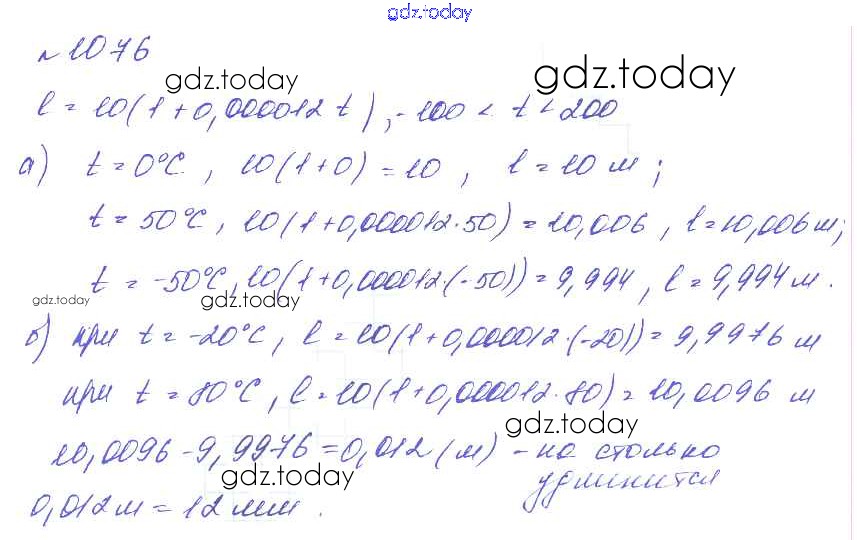 gdz.today
№1076
gdz.today gdz.today
l = 10(1+0,000012 t), -100 < t < 200
а) t = 0°C, 10(1+0) = 10, l = 10 м;
t = 50°C, 10(1+0,000012·50) = 10,006, l = 10,006 м;
t = -50°C, 10(1+0,000012·(-50)) = 9,994, l = 9,994 м.
gdz.today gdz.today
б) при t = -20°C, l = 10(1+0,000012·(-20)) = 9,9976 м
при t = 80°C, l = 10(1+0,000012·80) = 10,0096 м
gdz.today
10,0096 - 9,9976 = 0,012 (м) - на столько
удлинится
gdz.today
0,012 м = 12 мм.